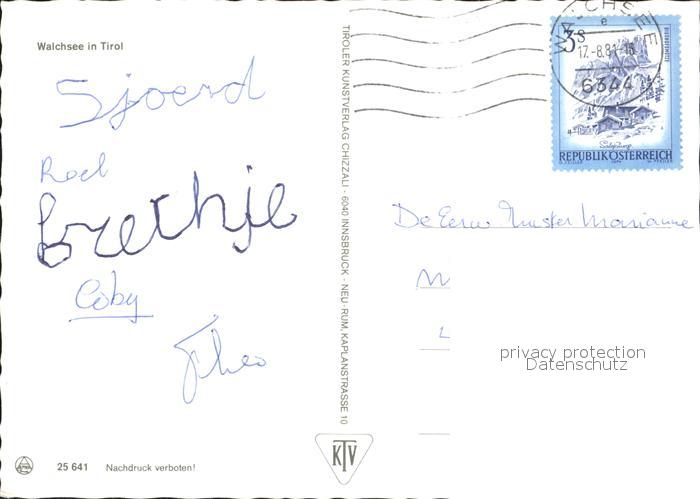 Walchsee in Tirol
Sjoerd
Roel
Grethje
Coby
Theo
25 641 Nachdruck verboten!
TIROLER KUNSTVERLAG CHIZZALI · 6040 INNSBRUCK - NEU-RUM, KAPLANSTRASSE 10
KTV
WALCHSEE
e
17.-8.81-18
6344
3 S
REPUBLIK ÖSTERREICH
De Eerw. Zuster Marianne
M
privacy protection
Datenschutz